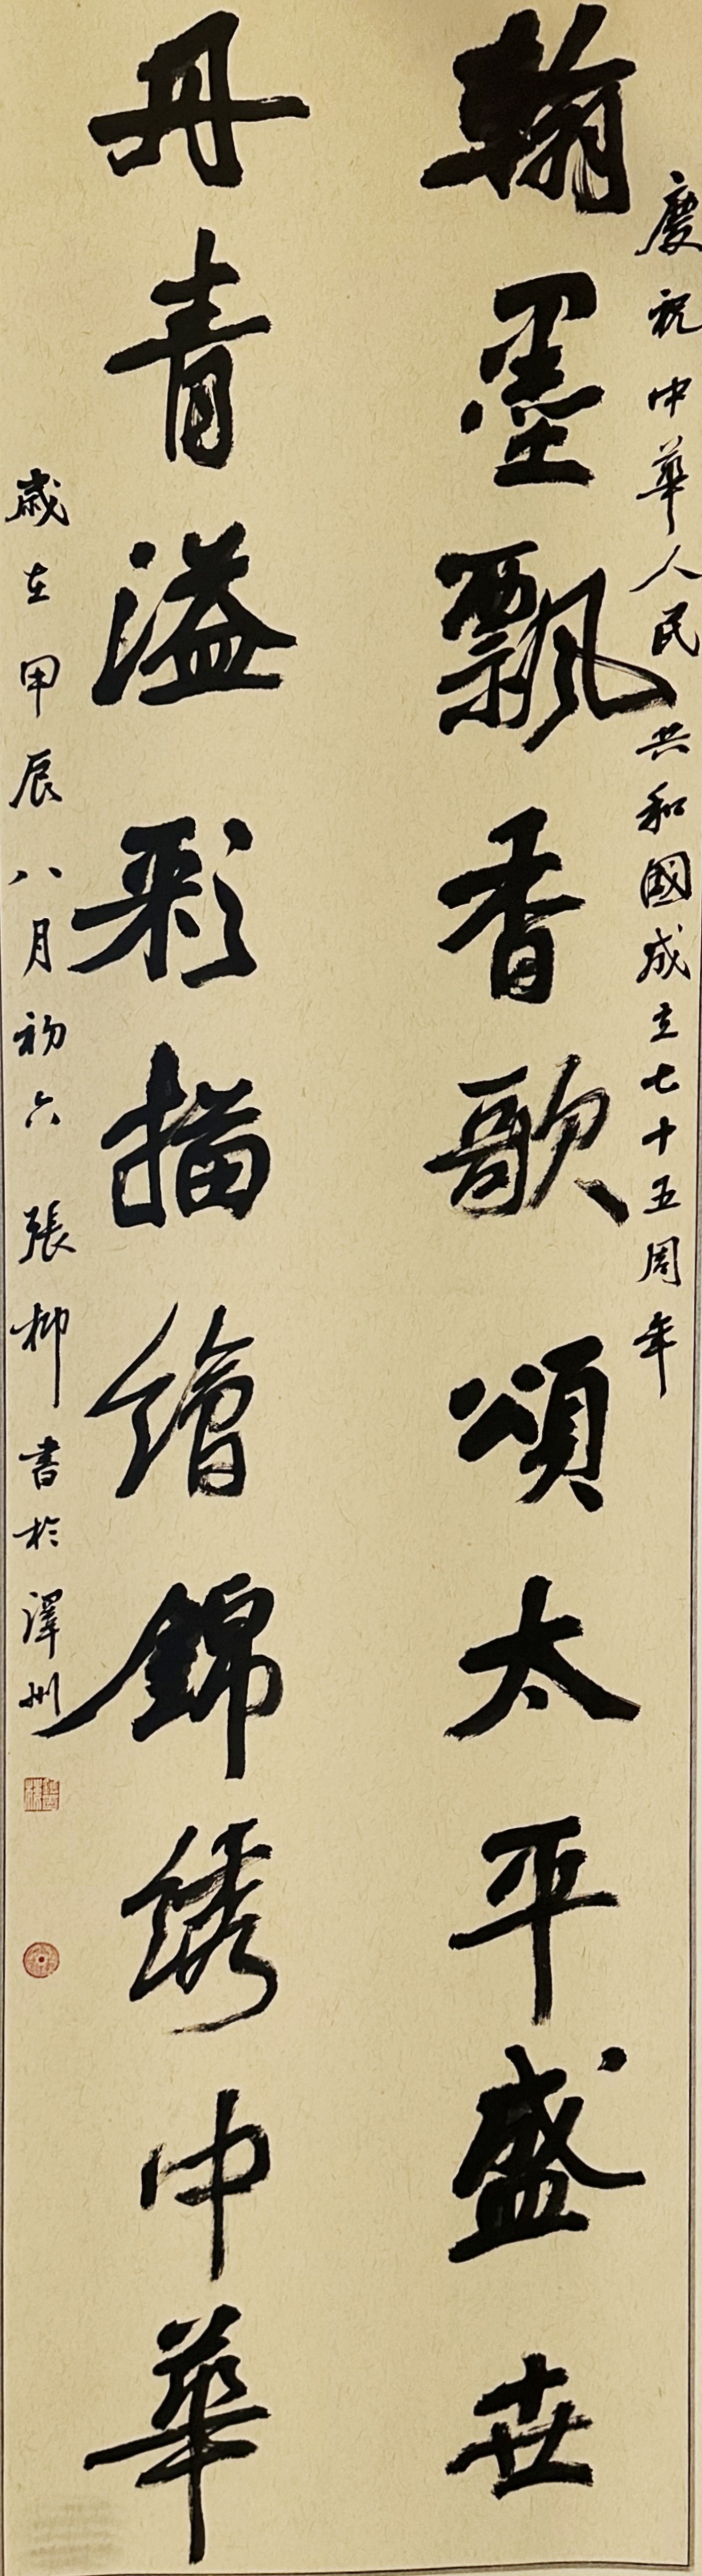 慶祝中華人民共和國成立七十五周年
翰墨飄香歌頌太平盛世
丹青溢彩描繪錦繡中華
歲在甲辰八月初六 張柳書於澤州